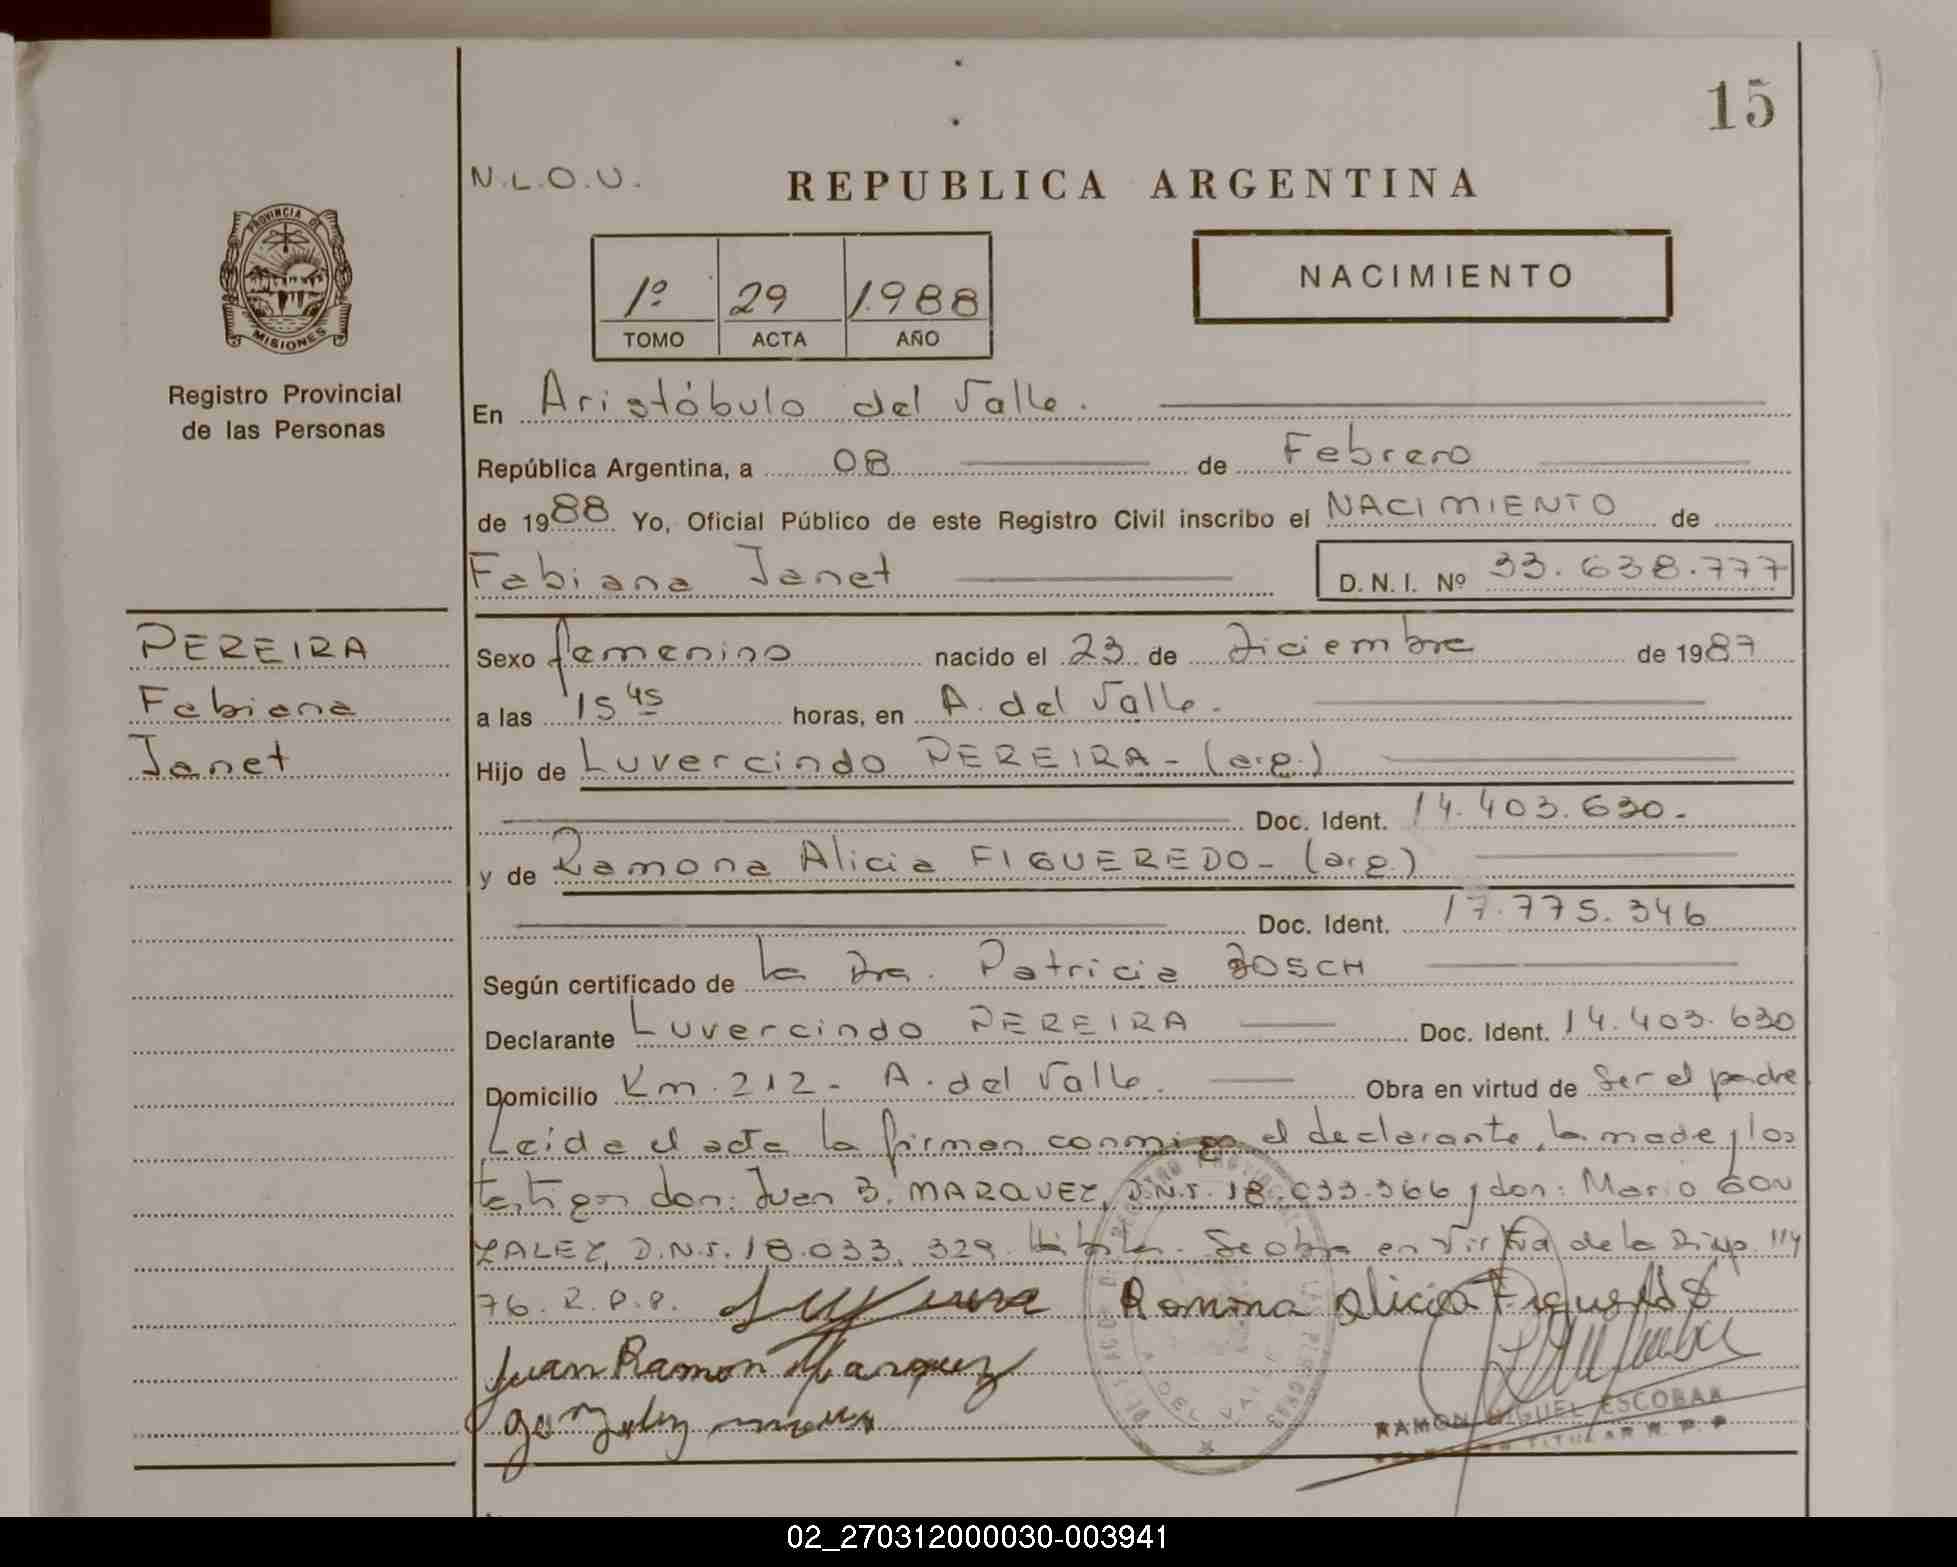 15
N.L.O.U.
REPUBLICA ARGENTINA
PROVINCIA DE
MISIONES
NACIMIENTO
1º 29 1.988
TOMO ACTA AÑO
Registro Provincial
de las Personas
En Aristóbulo del Valle.
República Argentina, a 08 de Febrero
de 1988 Yo, Oficial Público de este Registro Civil inscribo el NACIMIENTO de
Fabiana Janet D.N.I. Nº 33.638.777
PEREIRA
Fabiana
Janet
Sexo femenino nacido el 23 de Diciembre de 1987
a las 15 45 horas, en A. del Valle.
Hijo de Luvercindo PEREIRA - (arg.)
Doc. Ident. 14.403.630.-
y de Ramona Alicia FIGUEREDO - (arg.)
Doc. Ident. 17.775.346
Según certificado de la Dra. Patricia BOSCH
Declarante Luvercindo PEREIRA Doc. Ident. 14.403.630
Domicilio Km. 212 - A. del Valle. Obra en virtud de Ser el padre
Leida el acta la firman conmigo el declarante, la madre y los
testigos don: Juan B. MARQUEZ, D.N.I. 18.033.366 y don: Mario GON
ZALEZ, D.N.I. 18.033.329. Hábiles. Se obra en virtud de la Disp. 114
76. R.P.P.
Romona Alicia Figueredo
Juan Ramon Marquez
gonzalez
RAMON MIGUEL ESCOBAR
TITULAR R. P. P.
02_270312000030-003941